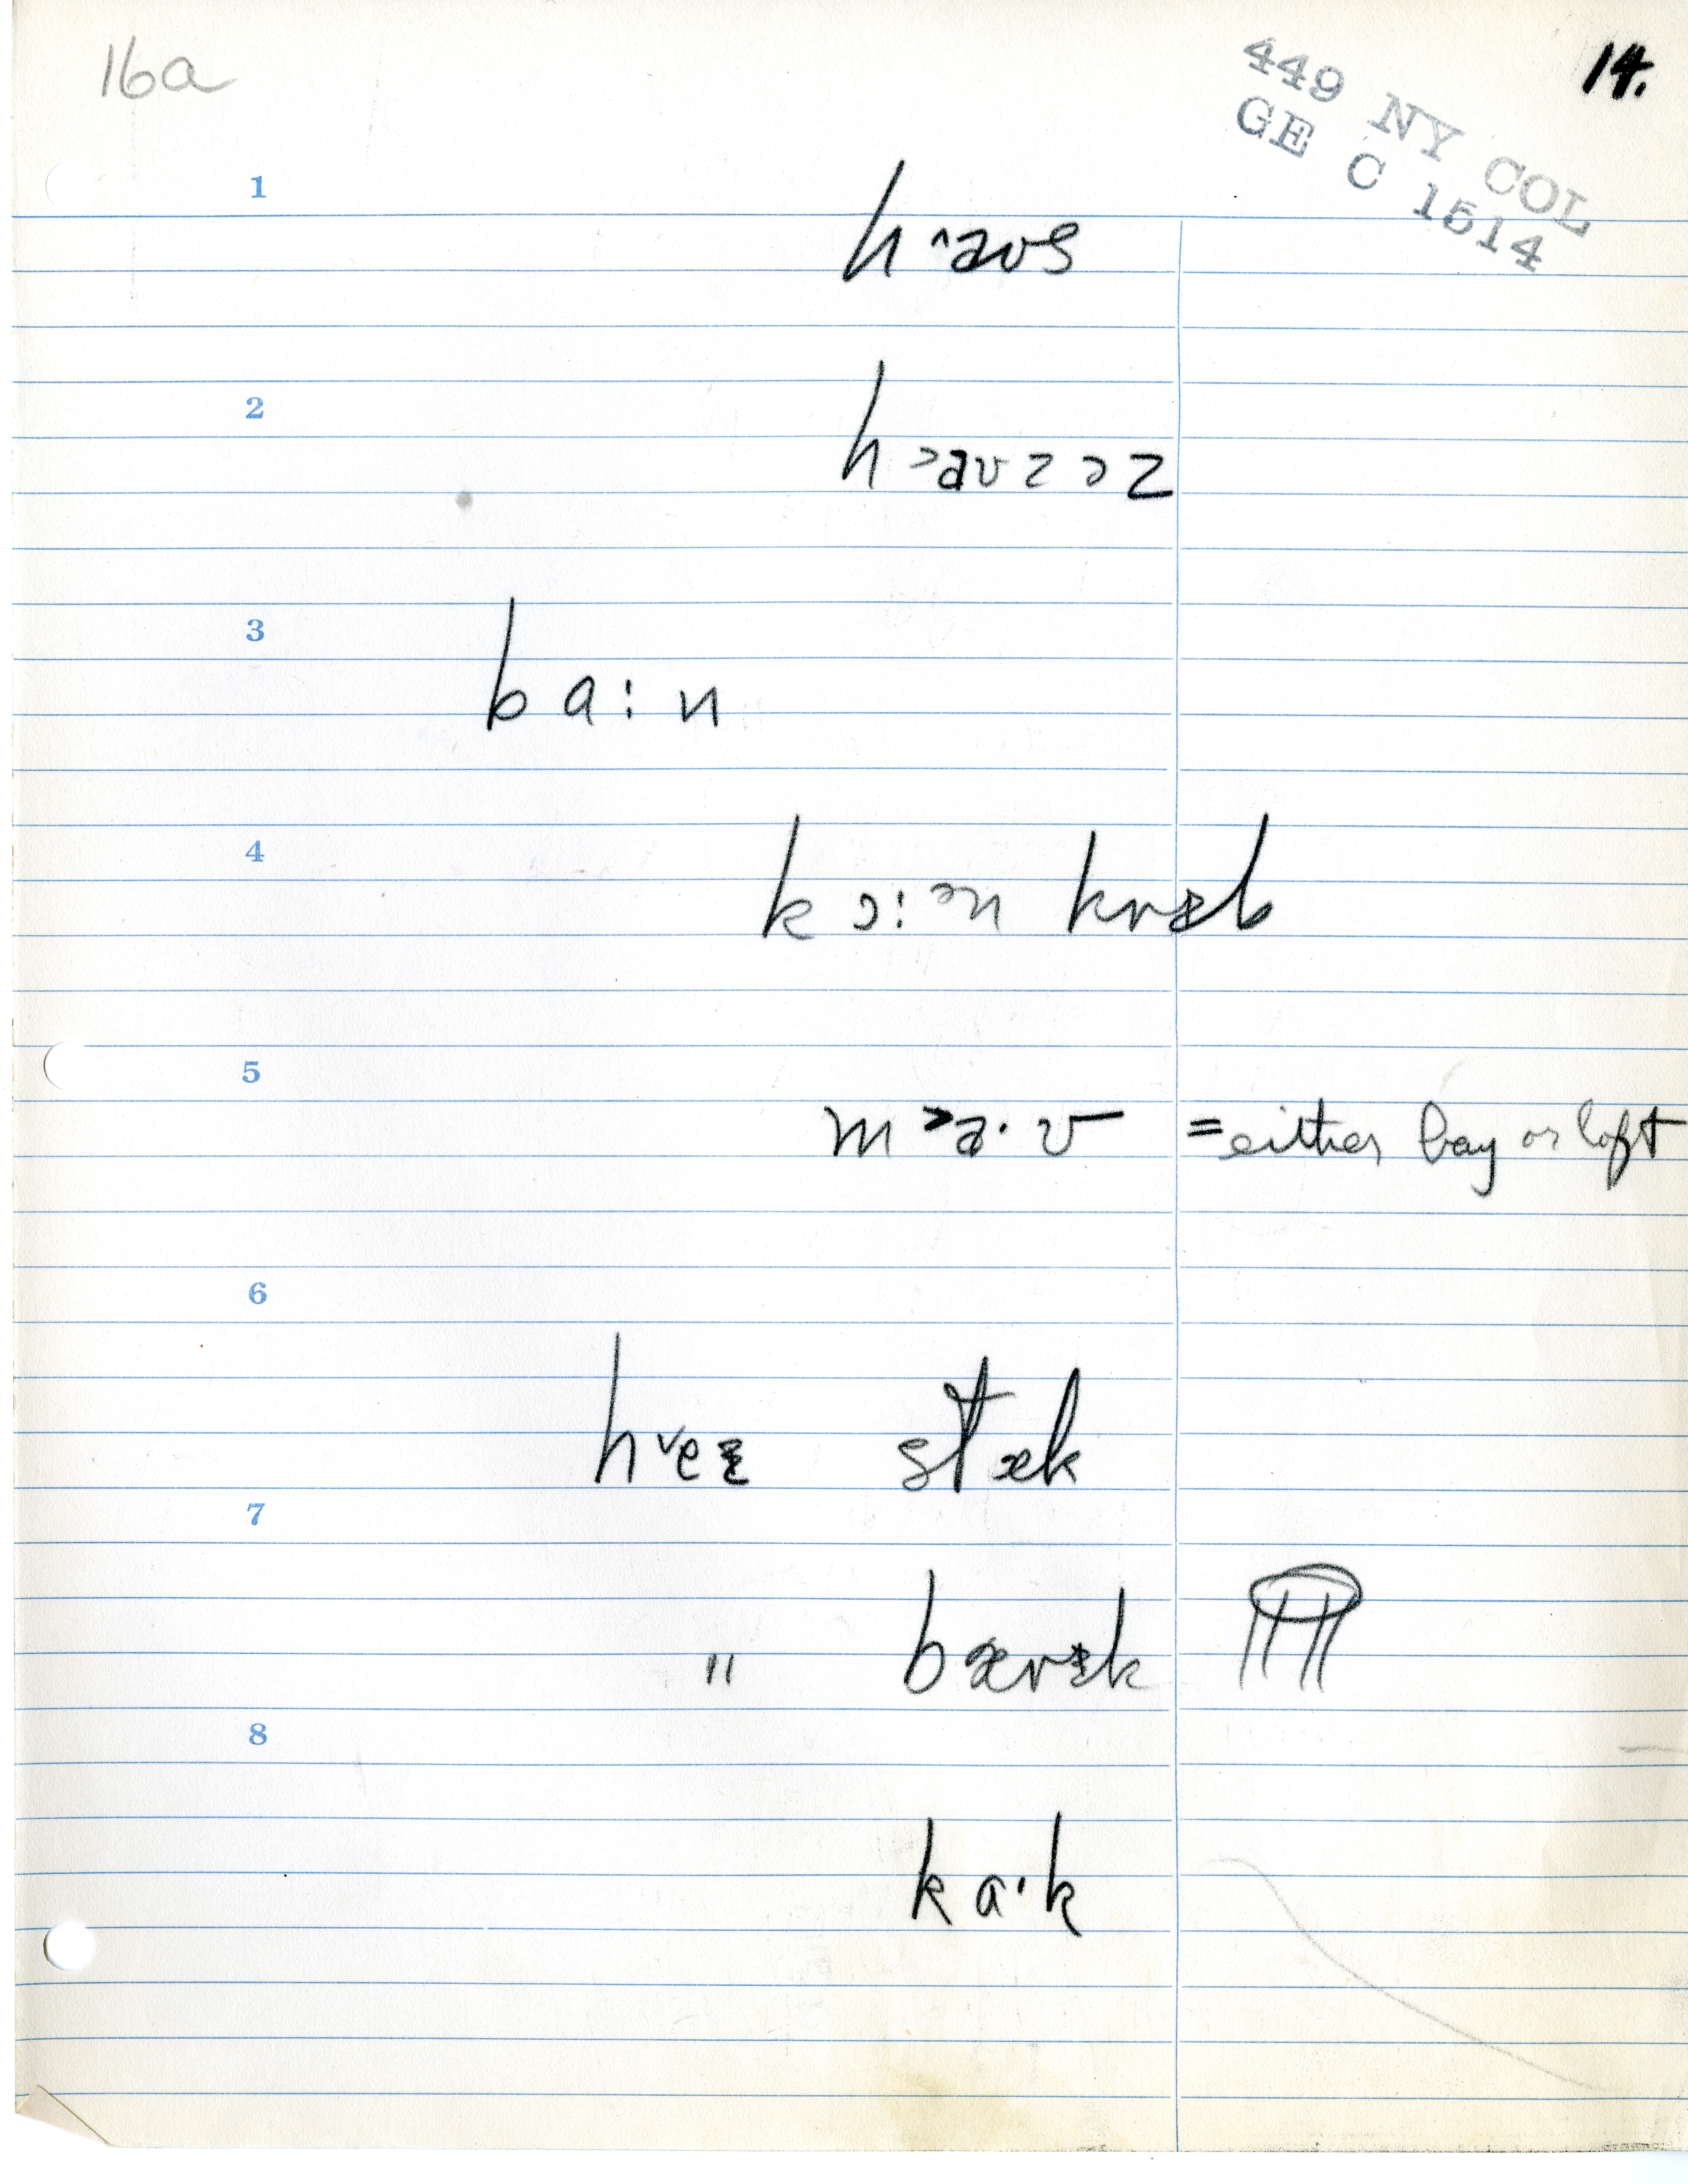 16a
14.
449 NY COL
GE C 1514
1
h ^aʊs
2
h >aʊzəz
3
ba:n
4
kɔ:ən kræb
5
m >a·ʊ = either bay or loft
6
h ˅eɪ stæk
7
" bærək
8
ka·k